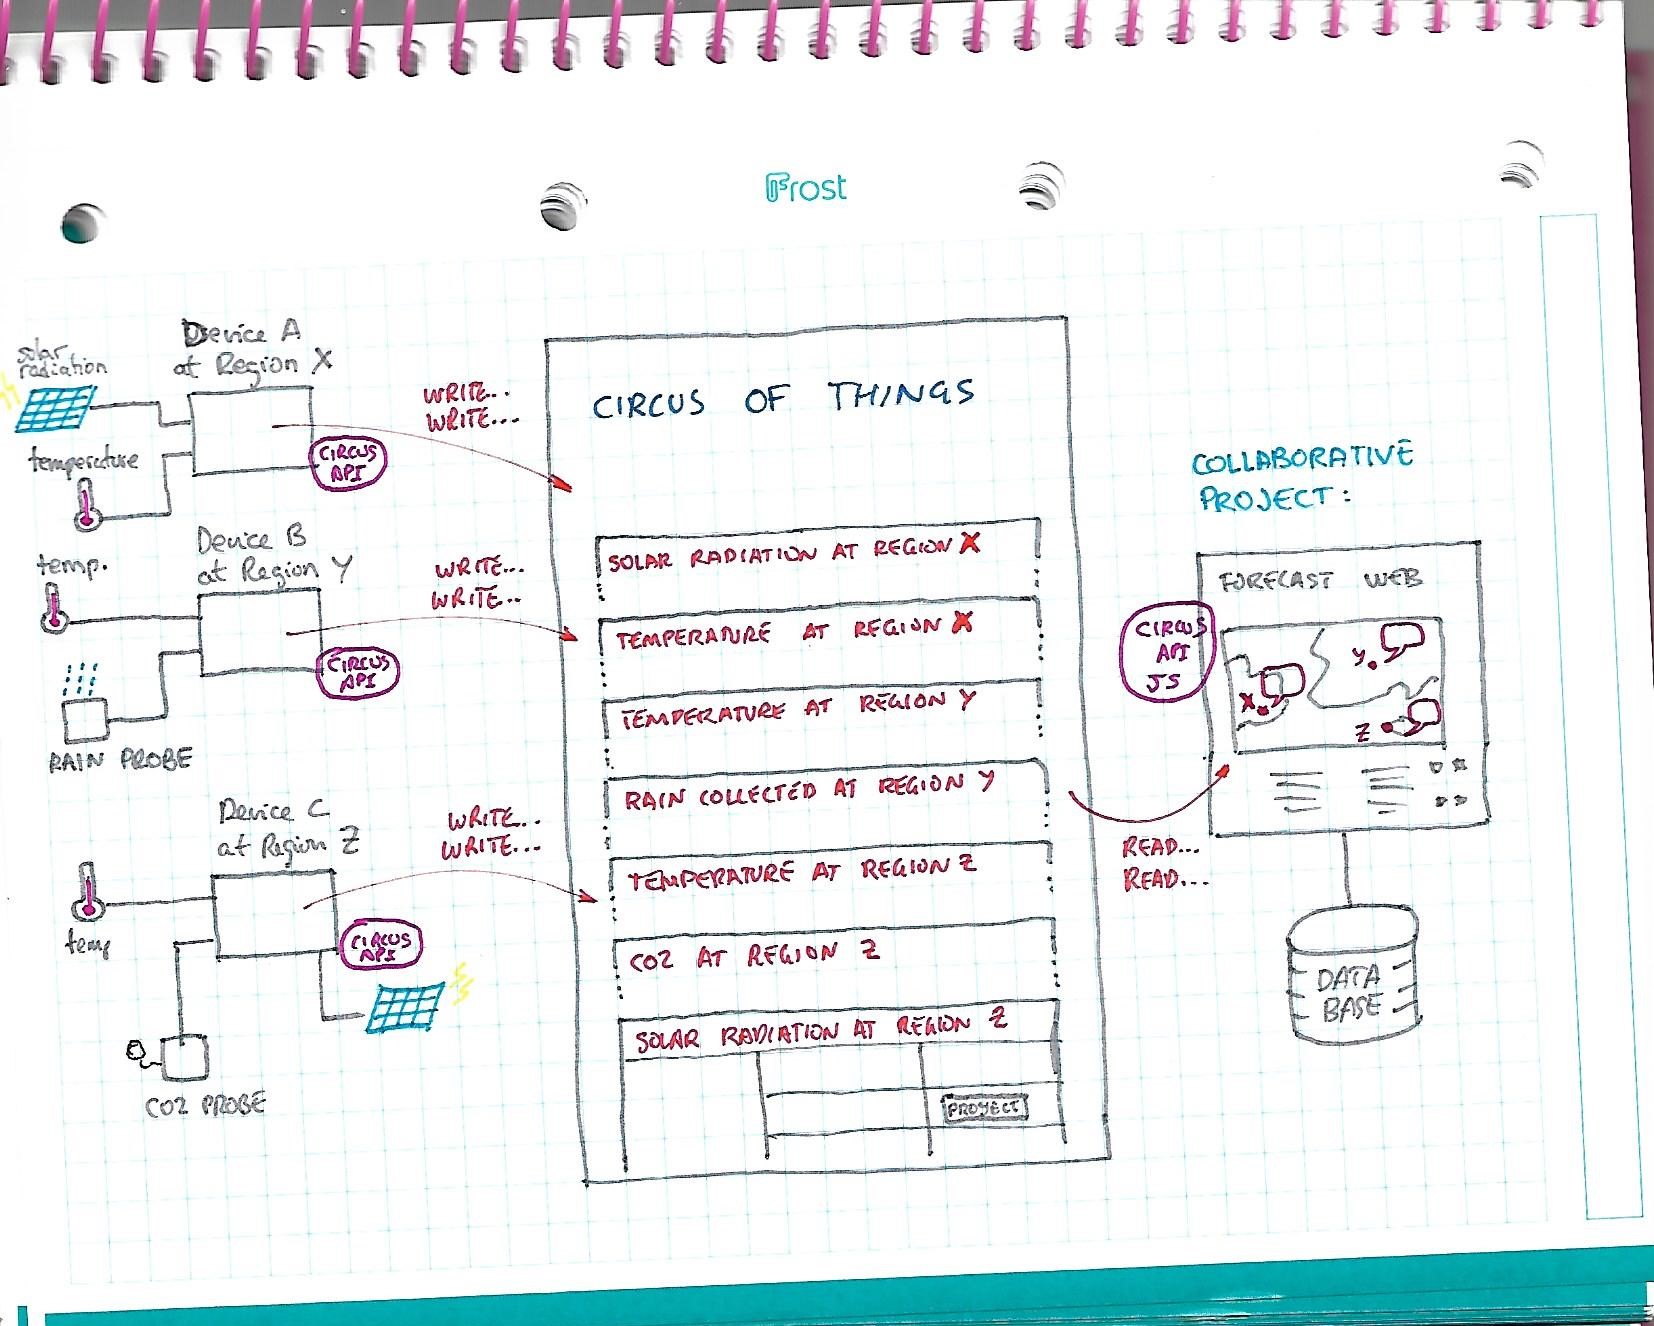 Frost
solar
radiation
Device A
at Region X
temperature
CIRCUS
API
WRITE...
WRITE...
temp.
Device B
at Region Y
CIRCUS
API
RAIN PROBE
WRITE...
WRITE...
Device C
at Region Z
temp
CIRCUS
API
CO2 PROBE
WRITE...
WRITE...
CIRCUS OF THINGS
SOLAR RADIATION AT REGION X
TEMPERATURE AT REGION X
TEMPERATURE AT REGION Y
RAIN COLLECTED AT REGION Y
TEMPERATURE AT REGION Z
CO2 AT REGION Z
SOLAR RADIATION AT REGION Z
PROYECT
COLLABORATIVE
PROJECT:
FORECAST WEB
CIRCUS
API
JS
X
Y
Z
READ...
READ...
DATA
BASE